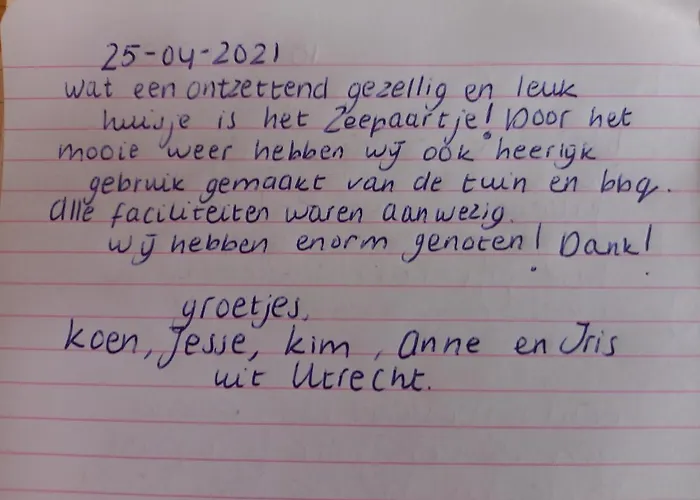 25-04-2021
wat een ontzettend gezellig en leuk
huisje is het Zeepaartje! Door het
mooie weer hebben wij ook heerlijk
gebruik gemaakt van de tuin en bbq.
alle faciliteiten waren aanwezig.
wij hebben enorm genoten! Dank!
groetjes,
koen, Jesse, kim, anne en Iris
uit Utrecht.